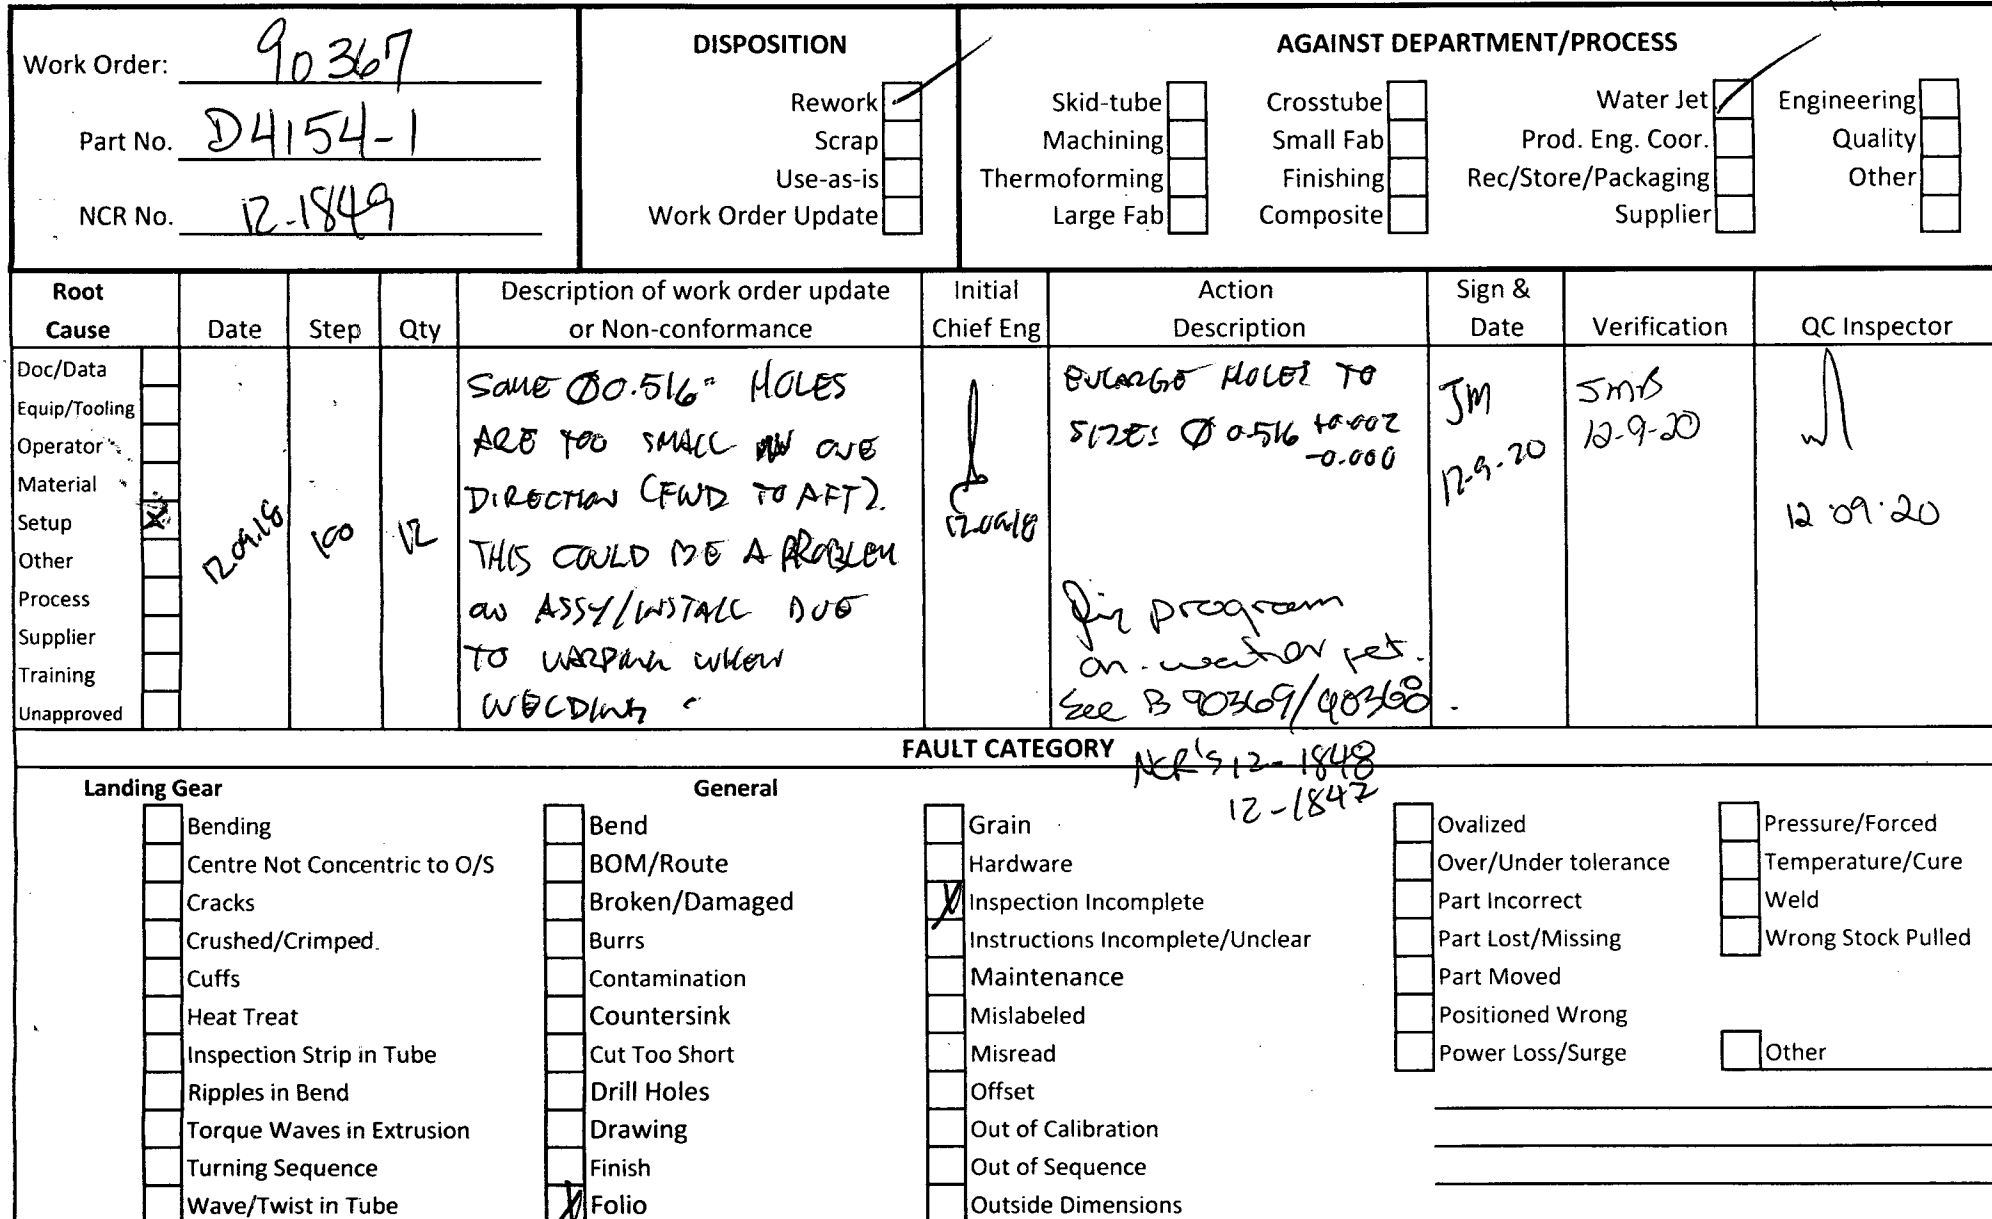 Work Order: 90367
Part No. D4154-1
NCR No. 12-1849
DISPOSITION
Rework
Scrap
Use-as-is
Work Order Update
AGAINST DEPARTMENT/PROCESS
Skid-tube Crosstube Water Jet Engineering
Machining Small Fab Prod. Eng. Coor. Quality
Thermoforming Finishing Rec/Store/Packaging Other
Large Fab Composite Supplier
Root Cause
Date
Step
Qty
Description of work order update
or Non-conformance
Initial
Chief Eng
Action
Description
Sign &
Date
Verification
QC Inspector
Doc/Data
Equip/Tooling
Operator
Material
Setup X
Other
Process
Supplier
Training
Unapproved
12.09.18
100
12
SOME Ø0.516" HOLES
ARE TOO SMALL IN ONE
DIRECTION (FWD TO AFT).
THIS COULD BE A PROBLEM
ON ASSY/INSTALL DUE
TO WARPING WHEN
WELDING
12.09.18
ENLARGE HOLES TO
SIZE: Ø 0.516 +0.002
-0.000
Fix program
on water jet.
See B 90369/90368
NCR's 12-1848
12-1847
JM
12-9-20
JMB
12-9-20
12.09.20
FAULT CATEGORY
Landing Gear
Bending
Centre Not Concentric to O/S
Cracks
Crushed/Crimped.
Cuffs
Heat Treat
Inspection Strip in Tube
Ripples in Bend
Torque Waves in Extrusion
Turning Sequence
Wave/Twist in Tube
General
Bend
BOM/Route
Broken/Damaged
Burrs
Contamination
Countersink
Cut Too Short
Drill Holes
Drawing
Finish
X Folio
Grain
Hardware
X Inspection Incomplete
Instructions Incomplete/Unclear
Maintenance
Mislabeled
Misread
Offset
Out of Calibration
Out of Sequence
Outside Dimensions
Ovalized
Over/Under tolerance
Part Incorrect
Part Lost/Missing
Part Moved
Positioned Wrong
Power Loss/Surge
Pressure/Forced
Temperature/Cure
Weld
Wrong Stock Pulled
Other